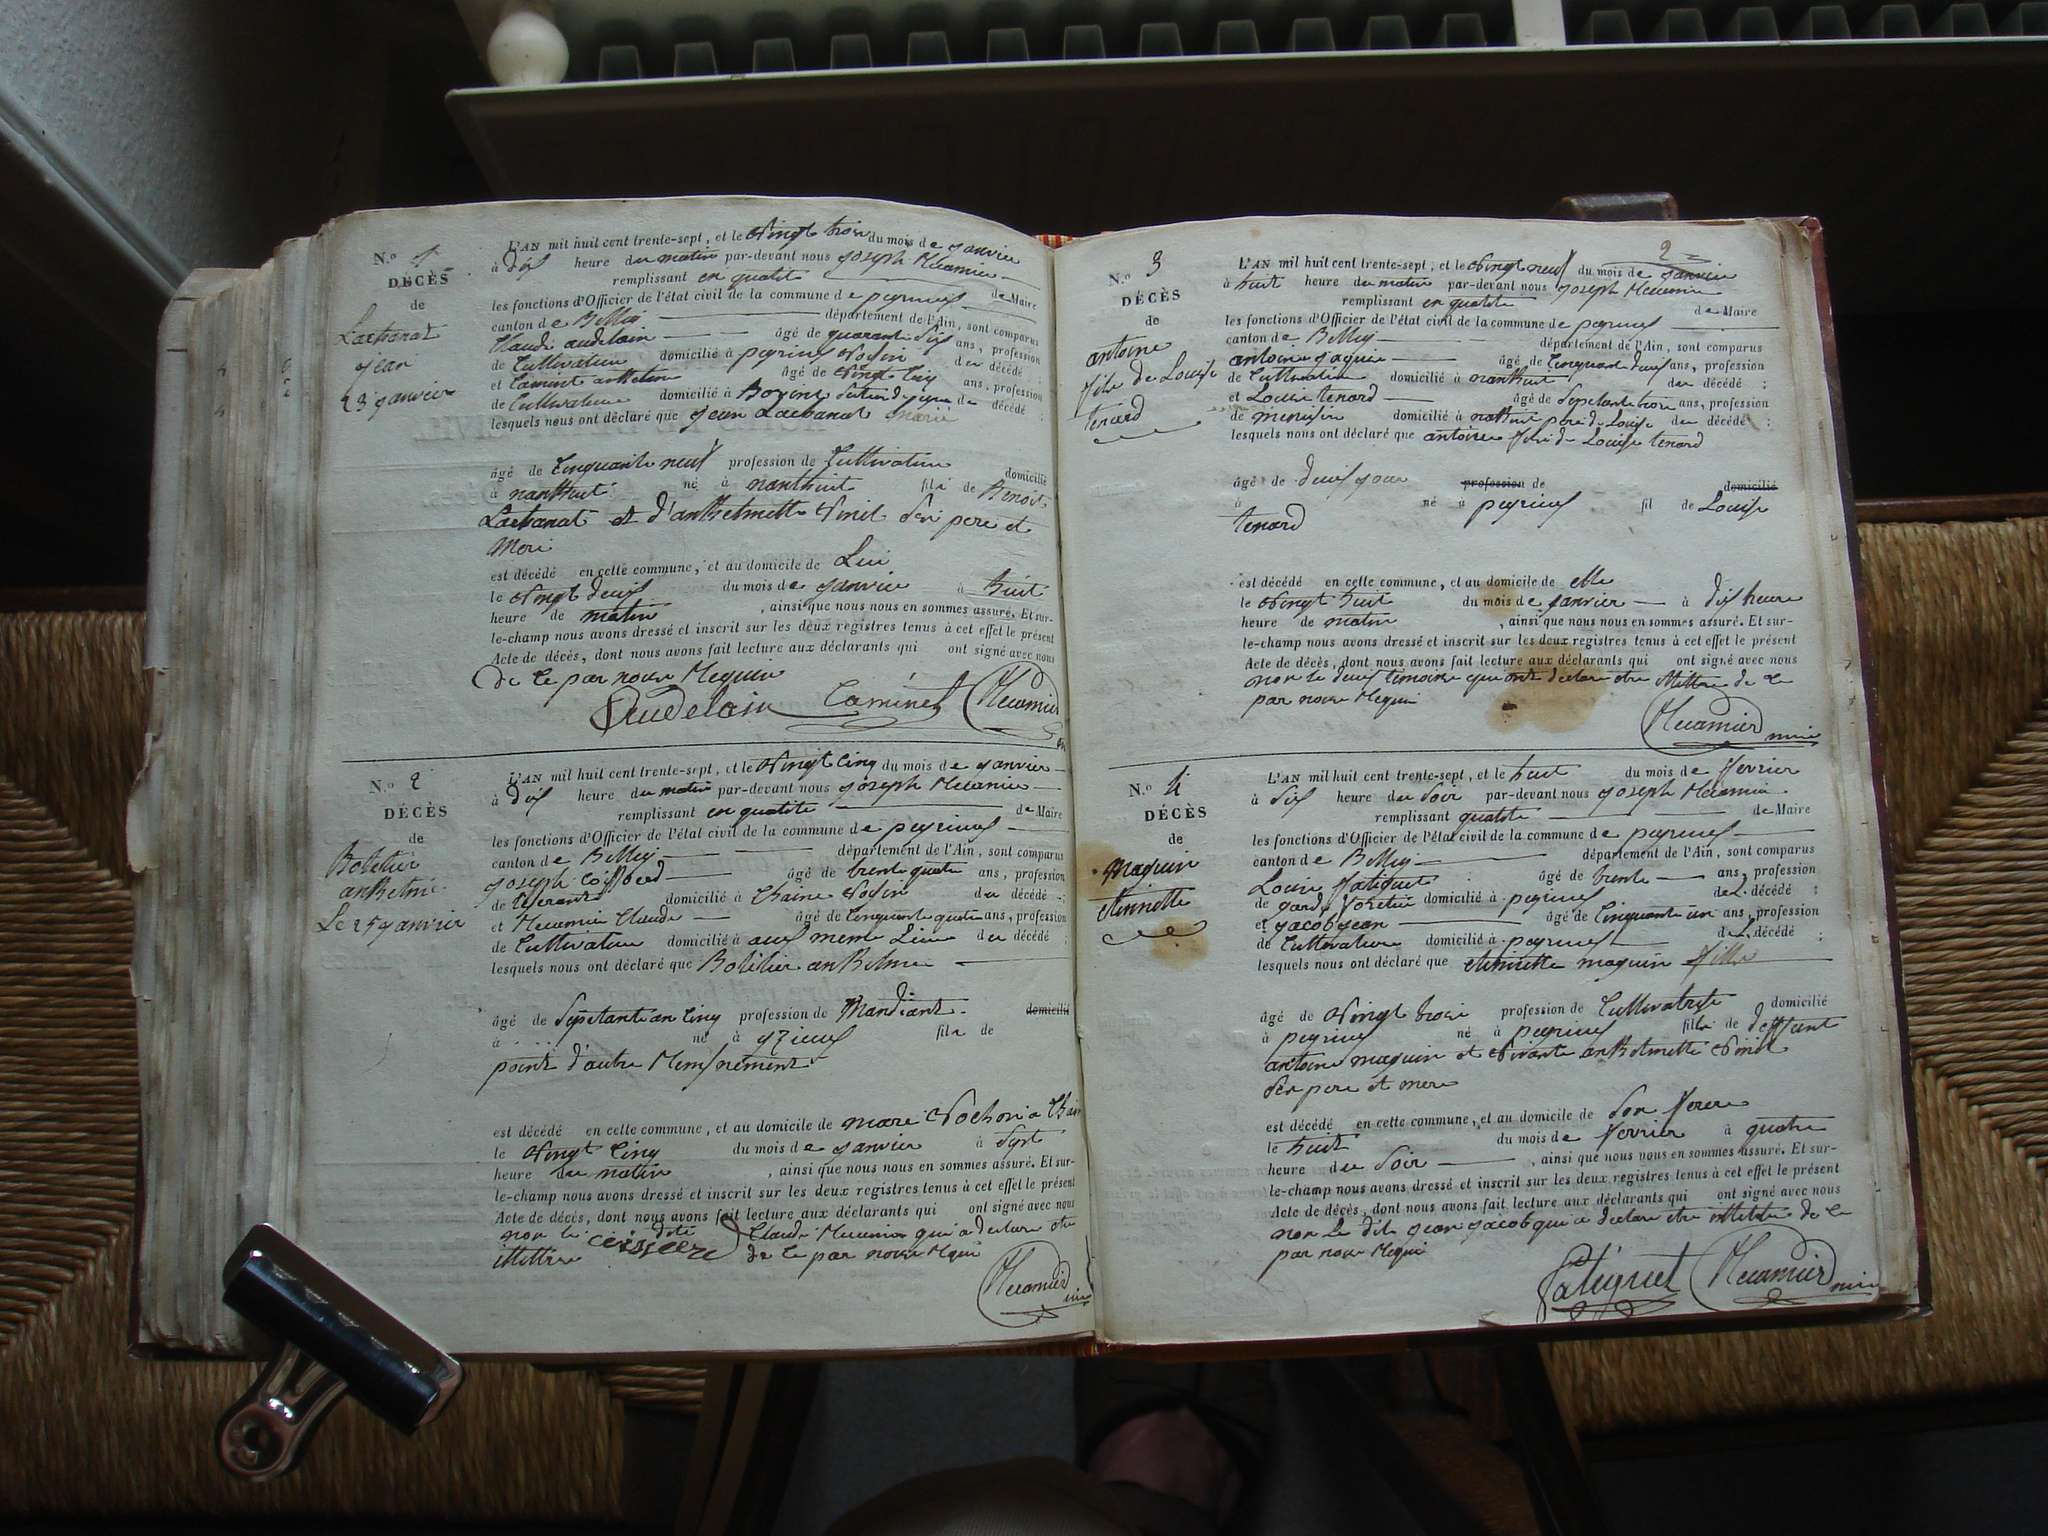 N.o 1
DÉCÈS
de
Lachanat
Jean
23 janvier
L'AN mil huit cent trente-sept, et le vingt trois du mois de janvier
à dix heure du matin par-devant nous joseph Récamier
remplissant en qualité de Maire
les fonctions d'Officier de l'état civil de la commune de peyrieux
canton de Belley département de l'Ain, sont comparus
Claude audelain âgé de quarante six ans, profession
de Cultivateur domicilié à peyrieux voisin du décédé ;
et Caminet anthelme âgé de vingt cinq ans, profession
de Cultivateur domicilié à du décédé ;
lesquels nous ont déclaré que jean Lachanat marié
âgé de Cinquante neuf profession de Cultivateur domicilié
à nanthuit né à nanthuit fils de Benoit
Lachanat et d'anthelmette vinit Ses pere et
Mere
est décédé en cette commune, et au domicile de Lui
le vingt deux du mois de janvier à huit
heure de matin , ainsi que nous nous en sommes assuré. Et sur-
le-champ nous avons dressé et inscrit sur les deux registres tenus à cet effet le présent
Acte de décès, dont nous avons fait lecture aux déclarants qui ont signé avec nous
de Ce par nous Requis
Audelain Caminet Récamier
N.o 2
DÉCÈS
de
Bolélier
anthelme
Le 25 janvier
L'AN mil huit cent trente-sept, et le vingt cinq du mois de janvier
à dix heure du matin par-devant nous joseph Récamier
remplissant en qualité de Maire
les fonctions d'Officier de l'état civil de la commune de peyrieux
canton de Belley département de l'Ain, sont comparus
joseph âgé de trente quatre ans, profession
de domicilié à voisin du décédé ;
et Récamier Claude âgé de Cinquante quatre ans, profession
de Cultivateur domicilié à aux meme Lieu du décédé ;
lesquels nous ont déclaré que Bolélier anthelme
âgé de Septante cinq profession de Mandiant domicilié
à né à yzieux fils de
point d'autre Rensnement
est décédé en cette commune, et au domicile de marc vochon a
le vingt Cinq du mois de janvier à Sept
heure du matin , ainsi que nous nous en sommes assuré. Et sur-
le-champ nous avons dressé et inscrit sur les deux registres tenus à cet effet le présent
Acte de décès, dont nous avons fait lecture aux déclarants qui ont signé avec nous
non le dite Claude Récamier qui a declare etre
illittére de Ce par nous Requi
Récamier
N.o 3
DÉCÈS
de
antoine
fils de Louise
tenard
2
L'AN mil huit cent trente-sept, et le vingt neuf du mois de janvier
à huit heure du matin par-devant nous joseph Récamier
remplissant en qualité de Maire
les fonctions d'Officier de l'état civil de la commune de peyrieux
canton de Belley département de l'Ain, sont comparus
antoine jaquier âgé de Cinquant deux ans, profession
de Cultivateur domicilié à nanthuit du décédé ;
et Louis tenard âgé de Septante trois ans, profession
de domicilié à nathuit pere de Louise du décédé ;
lesquels nous ont déclaré que antoine fils de Louise tenard
âgé de deux jour profession de domicilié
à né à peyrieux fil de Louise
tenard
est décédé en cette commune, et au domicile de elle
le vingt huit du mois de janvier à dix heure
heure de matin , ainsi que nous nous en sommes assuré. Et sur-
le-champ nous avons dressé et inscrit sur les deux registres tenus à cet effet le présent
Acte de décès, dont nous avons fait lecture aux déclarants qui ont signé avec nous
non le deux temoins qui ont déclaré etre illittre de Ce
par nous Requi
Récamier maire
N.o 4
DÉCÈS
de
Maquin
etiennette
L'AN mil huit cent trente-sept, et le huit du mois de fevrier
à Six heure du Soir par-devant nous joseph Récamier
remplissant qualité de Maire
les fonctions d'Officier de l'état civil de la commune de peyrieux
canton de Belley département de l'Ain, sont comparus
Louis fatiguet âgé de trente ans, profession
de garde foretier domicilié à peyrieux de L. décédé ;
et jacob jean âgé de Cinquante un ans, profession
de Cultivateur domicilié à peyrieux de L. décédé ;
lesquels nous ont déclaré que etiennette maquin fille
âgé de vingt trois profession de Cultivatrise domicilié
à peyrieux né à peyrieux fille de deffunt
antoine maquin et vivante anthelmette vinit
Ses pere et mere
est décédé en cette commune, et au domicile de Son frere
le huit du mois de fevrier à quatre
heure du Soir , ainsi que nous nous en sommes assuré. Et sur-
le-champ nous avons dressé et inscrit sur les deux registres tenus à cet effet le présent
Acte de décès, dont nous avons fait lecture aux déclarants qui ont signé avec nous
non Le dit jean jacob qui a declare etre illitére de Ce
par nous Requi
fatiguet Récamier maire